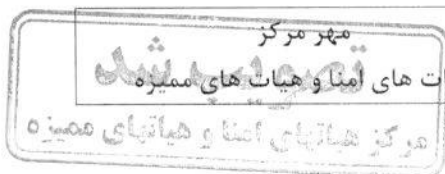 مهر مرکز
ت های امنا و هیات های ممیزه
تصویب شد
مرکز هیاتهای امنا و هیاتهای ممیزه